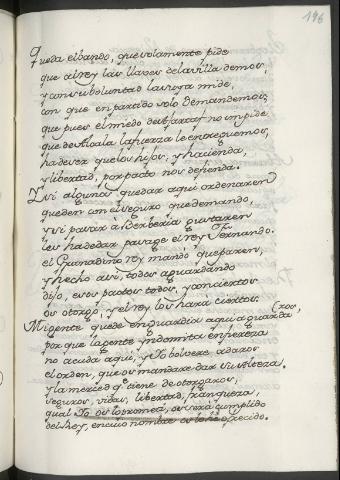 196
Queda el bando, que solamente pide
que al rey las llaves de la villa demos,
y con su boluntad la suya mide,
con que en partido solo demandemos;
que pues el miedo no impide
que de Alcala la fuerza le entreguemos,
ha de ser que los hijos, y hacienda,
y libertad, por pacto nos defienda.
I si algunos quedar aqui ordenaren
queden con el seguro que demando,
y si pasar à Berberia gustaren
les ha de dar pasage el rey Fernando.
el Granadino rey mandò que paren,
y hecho asi, todos aguardando
dijo, esos pactos todos, y conciertos
os otorgo, y el rey los harà ciertos.
Mi gente quede en guardia aqui a guardaros,
por que la gente yndomita en fiereza
no acuda aqui, y Yo bolverè a daros
el orden, que os mandare dar su Alteza.
y la merced qe. tiene de otorgaros,
seguros, vidas, libertad, franqueza,
qual Yo os lo prometi, os serà cumplido
del Rey, en cuio nombre os lo hè ofrecido.